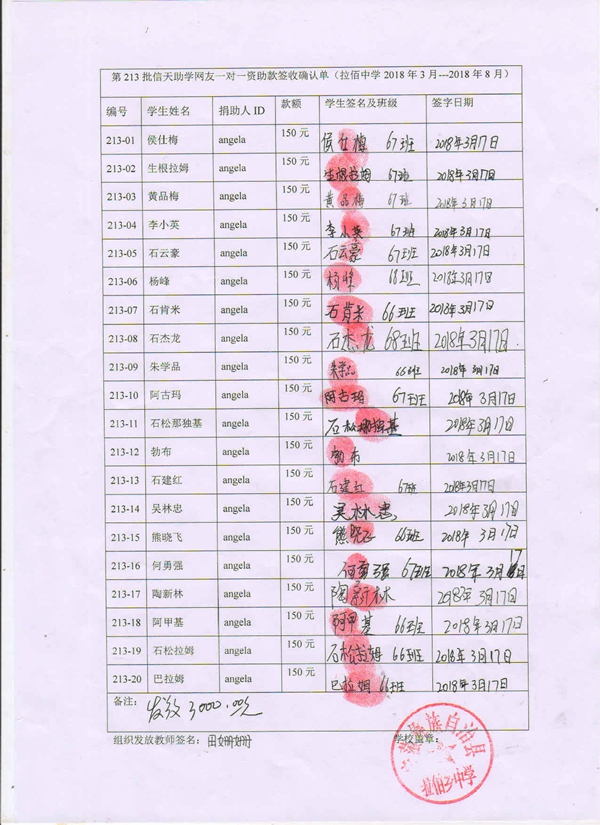 第213批信天助学网友一对一资助款签收确认单（拉佰中学2018年3月---2018年8月）
编号 学生姓名 捐助人ID 款额 学生签名及班级 签字日期
213-01 侯仕梅 angela 150元 侯仕梅 67班 2018年3月17日
213-02 生根拉姆 angela 150元 生根拉姆 67班 2018年3月17日
213-03 黄品梅 angela 150元 黄品梅 67班 2018年3月17日
213-04 李小英 angela 150元 李小英 67班 2018年3月17日
213-05 石云豪 angela 150元 石云豪 67班 2018年3月17日
213-06 杨峰 angela 150元 杨峰 68班 2018年3月17日
213-07 石肯米 angela 150元 石肯米 66班 2018年3月17日
213-08 石杰龙 angela 150元 石杰龙 68班 2018年3月17日.
213-09 朱学品 angela 150元 朱学品 66班 2018年3月17日
213-10 阿古玛 angela 150元 阿古玛 67班 2018年3月17日
213-11 石松那独基 angela 150元 石松那独基 2018年3月17日
213-12 勃布 angela 150元 勃布 2018年3月17日
213-13 石建红 angela 150元 石建红 67班 2018年3月17日
213-14 吴林忠 angela 150元 吴林忠 2018年3月17日
213-15 熊晓飞 angela 150元 熊晓飞 66班 2018年3月17日
213-16 何勇强 angela 150元 何勇强 67班 2018年3月17日
213-17 陶新林 angela 150元 陶新林 2018年3月17日
213-18 阿甲基 angela 150元 阿甲基 66班 2018年3月17日
213-19 石松拉姆 angela 150元 石松拉姆 66班 2018年3月17日
213-20 巴拉姆 angela 150元 巴拉姆 66班 2018年3月17日
备注： 发放3000.00元
组织发放教师签名： 田姗姗 学校盖章：
族自治县
拉佰乡中学